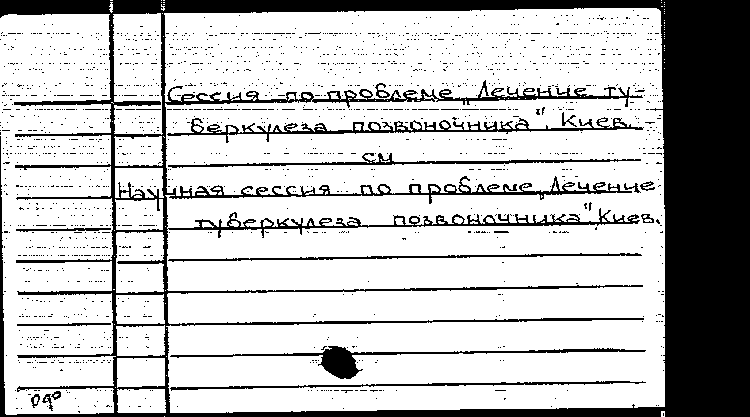 Сессия по проблеме „Лечение ту-
беркулеза позвоночника". Киев.
см
Научная сессия по проблеме „Лечение
туберкулеза позвоночника". Киев.